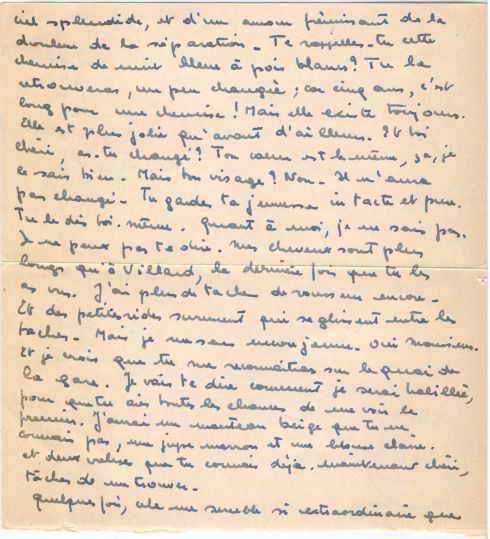 ciel splendide, et d'un amour frémissant de la
douleur de la séparation - Te rappelles-tu cette
chemise de nuit bleue à pois blancs? Tu la
retrouveras, un peu changée ; car cinq ans, c'est
long pour une chemise! Mais elle existe toujours.
Elle est plus jolie qu'avant d'ailleurs. Et toi
chéri, as-tu changé? Ton coeur est le même, ça, je
le sais bien - Mais ton visage? Non - Il n'aura
pas changé - Tu gardes ta jeunesse intacte et pure.
Tu le dis toi-même. Quant à moi, je ne sais pas.
Je ne peux pas te dire. Mes cheveux sont plus
longs qu'à Villard, la dernière fois que tu les
as vus. J'ai plus de taches de rousseur encore -
Et des petites rides surement qui se glissent entre les
taches - Mais je me sens encore jeune. Oui monsieur.
Et je crois que tu me reconnaitras sur le quai de
la gare. Je vais te dire comment je serai habillée,
pour que tu aies toutes les chances de me voir le
premier. J'aurai un manteau beige que tu ne
connais pas, une jupe marron et une blouse claire.
et deux valises que tu connais déjà. Maintenant chéri,
tâches de me trouver -
Quelquefois, cela me semble si extraordinaire que